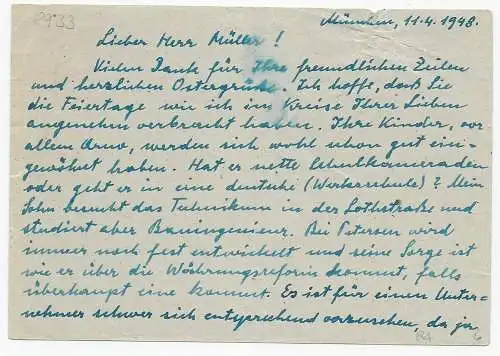 2933
München, 11.4.1948.
Lieber Herr Müller!
Vielen Dank für Ihre freundlichen Zeilen
und herzlichen Ostergrüße. Ich hoffe, daß Sie
die Feiertage wie ich im Kreise Ihrer Lieben
angenehm verbracht haben. Ihre Kinder, vor
allem Arno, werden sich wohl schon gut ein-
gewöhnt haben. Hat er nette Schulkameraden
oder geht er in eine deutsche (Werkerschule)? Mein
Sohn besucht das Technikum in der Lothstraße und
studiert aber Bauingenieur. Bei Petersen wird
immer noch fest entwickelt und seine Sorge ist
wie er über die Währungsreform kommt, falls
überhaupt eine kommt. Es ist für einen Unter-
nehmer schwer sich entsprechend vorzusehen, da ja